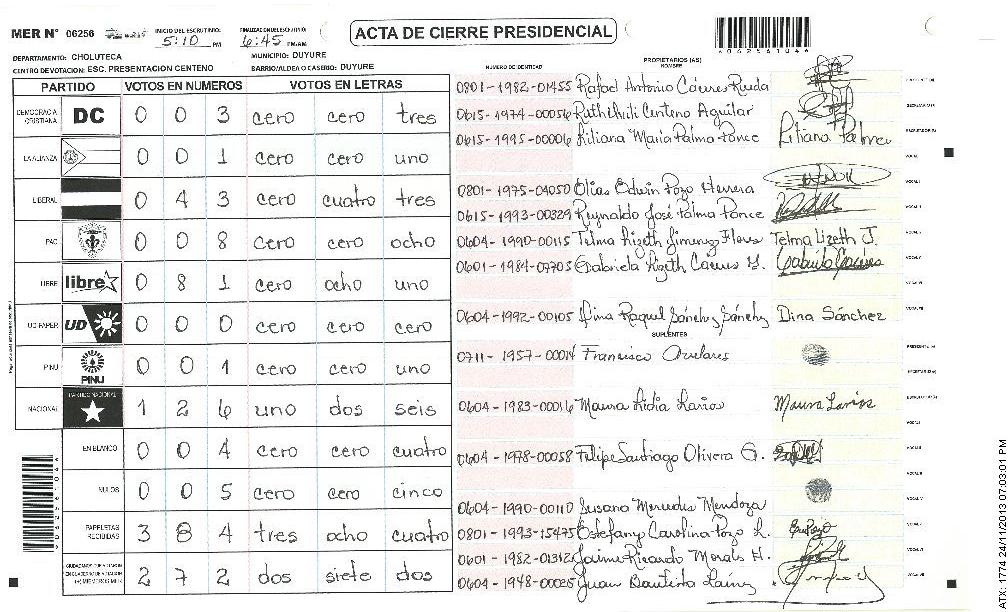 MER N° 06256
INICIO DEL ESCRUTINIO: 5:10 PM
FINALIZACION DEL ESCRUTINIO: 6:45 PM/AM
ACTA DE CIERRE PRESIDENCIAL
DEPARTAMENTO: CHOLUTECA
MUNICIPIO: DUYURE
CENTRO DE VOTACION: ESC. PRESENTACION CENTENO
BARRIO/ALDEA O CASERIO: DUYURE
PARTIDO VOTOS EN NUMEROS VOTOS EN LETRAS
DEMOCRACIA CRISTIANA DC 0 0 3 cero cero tres
LA ALIANZA 0 0 1 cero cero uno
LIBERAL 0 4 3 cero cuatro tres
PAC 0 0 8 cero cero ocho
LIBRE libre 0 8 1 cero ocho uno
UD FAPER UD 0 0 0 cero cero cero
PINU PINU 0 0 1 cero cero uno
NACIONAL PARTIDO NACIONAL 1 2 6 uno dos seis
EN BLANCO 0 0 4 cero cero cuatro
NULOS 0 0 5 cero cero cinco
PAPELETAS RECIBIDAS 3 8 4 tres ocho cuatro
2 7 2 dos siete dos
NUMERO DE IDENTIDAD
PROPIETARIOS (AS)
NOMBRE
0801-1982-01455 Rafael Antonio Cáceres Rueda
0615-1974-00056 Centeno Aguilar
0615-1995-00006 Liliana María Palma Ponce
0801-1975-04050 Olias Edwin Pozo Herrera
0615-1993-00329 Reynaldo José Palma Ponce
0604-1990-00115 Telma Lizeth Jimenez Flores Telma Lizeth J.
0601-1984-07705 Gabriela Lizeth
0604-1992-00105 Raquel Sánchez Sánchez Dina Sánchez
SUPLENTES
0711-1957-00014 Francisco
0604-1983-00016 Maura Lidia Larios Maura Larios
0604-1978-00058 Felipe Santiago Olivera G.
0604-1990-00110 Susana Mercedes Mendoza
0801-1993-15475 Estefany Carolina Pozo L.
0601-1982-01312 Jaime Ricardo H.
0604-1948-00025 Juan Bautista Lainez
ATX 1774 24/11/2013 07:03:01 PM